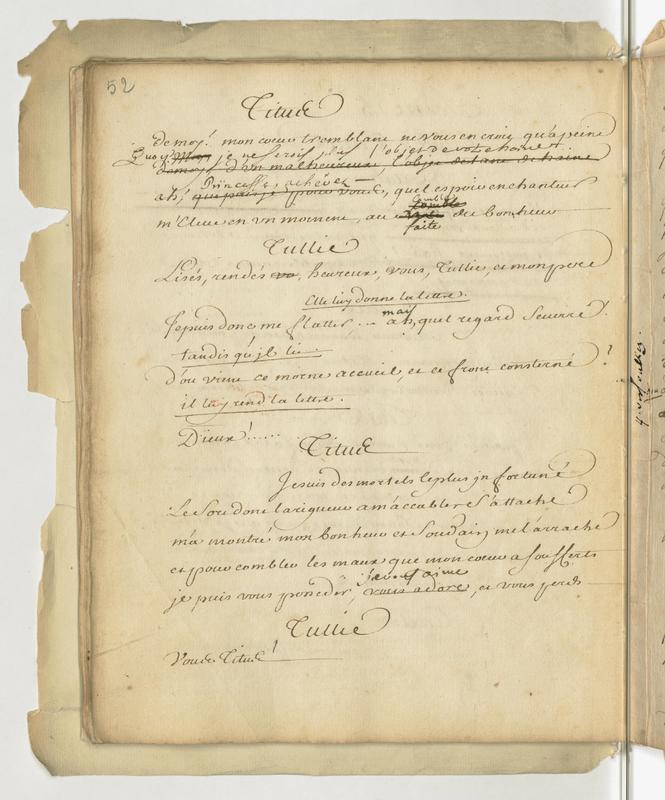 52
Titus
de moy! mon coeur tremblant ne vous en croit qu'à peine
Quoy! Moy je ne serois plus l'objet de votre haine!
de moy d'un malheureux, l'objet de tant de haine
Princesse, achevez
ah, que puis je pour vous, quel espoir enchanteur
comble
m'Eleve en un moment, au comble du bonheur
faite
Tullie
Lisés, rendés heureux, vous, Tullie, et mon pere
Elle luy donne la lettre.
may
Je puis donc me flatter ... ah, quel regard severe!
tandis qu'il lit
d'ou vient ce morne accueil, et ce front consterné?
il luy rend la lettre.
Dieux!.....
Titus
Je suis des mortels le plus infortuné
Le Sort dont la rigueur a m'accabler s'attache
m'a montré mon bonheur et soudain me l'arrache
et pour combler les maux que mon coeur a soufferts
j'avous aime
je puis vous posseder, vous adore, et vous perds
Tullie
Vous Titus!